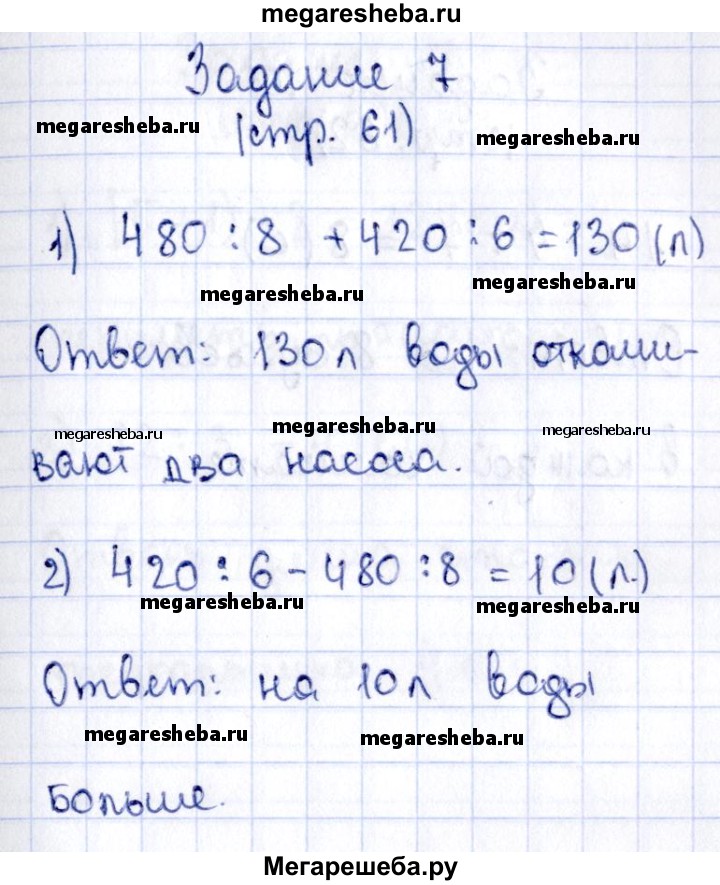 megaresheba.ru
Задание 7
megaresheba.ru (стр. 61) megaresheba.ru
1) 480 : 8 + 420 : 6 = 130 (л)
megaresheba.ru megaresheba.ru
Ответ: 130 л воды откачи-
megaresheba.ru megaresheba.ru megaresheba.ru
вают два насоса.
2) 420 : 6 - 480 : 8 = 10 (л.)
megaresheba.ru megaresheba.ru
Ответ: на 10 л воды
megaresheba.ru megaresheba.ru
больше.
Мегарешеба.ру